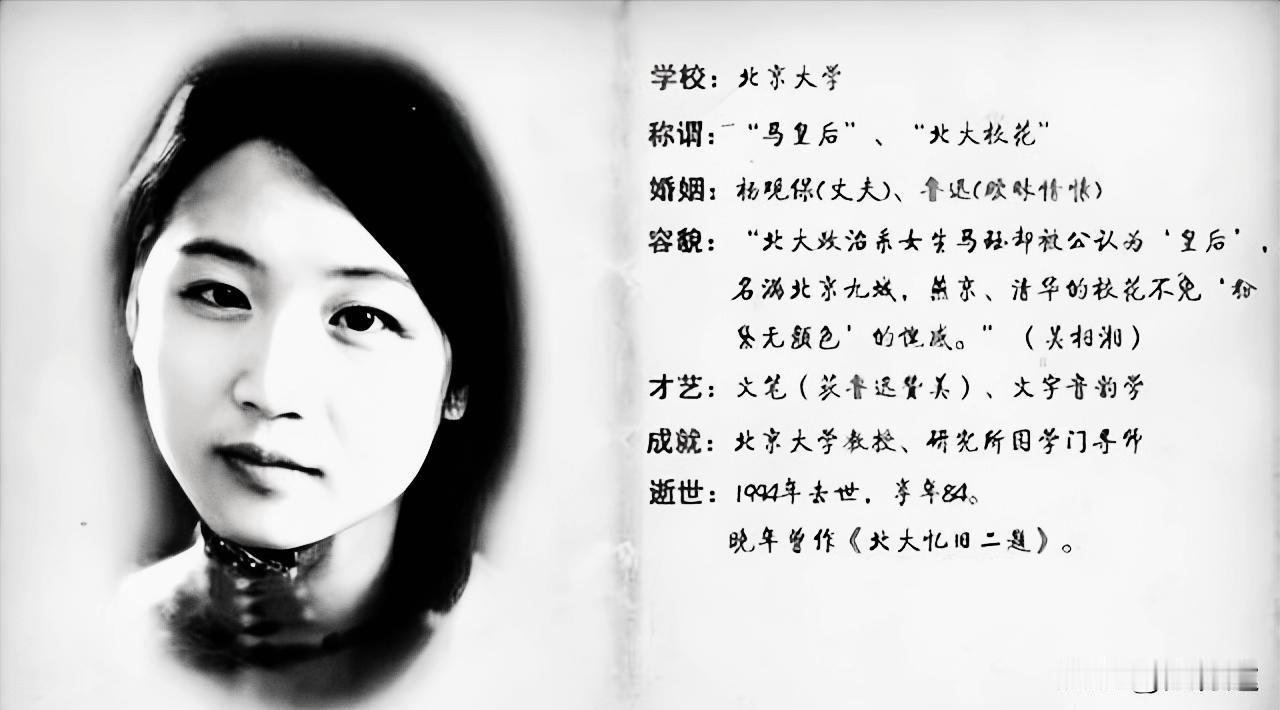 学校：北京大学
称谓："马皇后"、"北大校花"
婚姻：杨观保(丈夫)、鲁迅(暧昧情愫)
容貌："北大政治系女生马珏却被公认为'皇后'，
名满北京九城，燕京、清华的校花不免'粉
黛无颜色'的愧感。"（吴相湘）
才艺：文笔（获鲁迅赞美）、文字音韵学
成就：北京大学教授、研究所国学门导师
逝世：1994年去世，享年84。
晚年曾作《北大忆旧二题》。